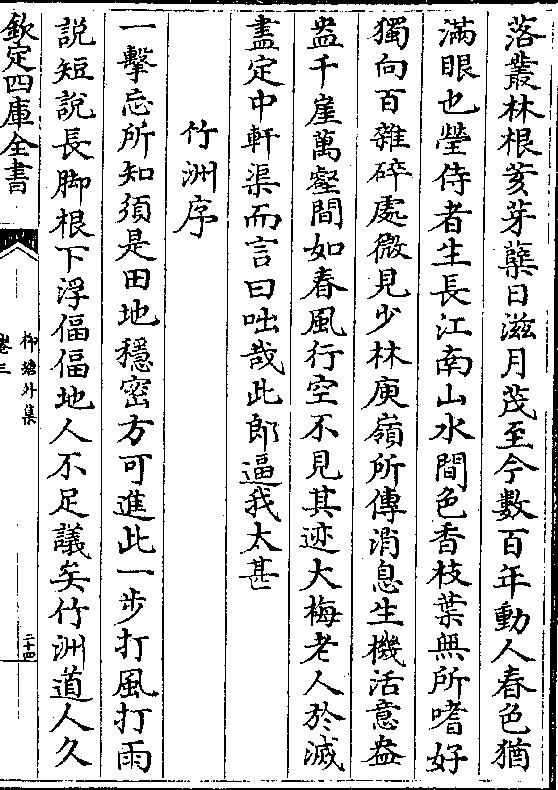 落叢林根荄芽蘖日滋月茂至今數百年動人春色猶
滿眼也瑩侍者生長江南山水間色香枝葉無所嗜好
獨向百雜碎處微見少林庾嶺所傳消息生機活意盎
盎千崖萬壑間如春風行空不見其迹大梅老人於滅
盡定中軒渠而言曰咄哉此郎逼我太甚
竹洲序
一擊忘所知須是田地穩密方可進此一步打風打雨
說短說長脚根下浮偪偪地人不足議矣竹洲道人久
欽定四庫全書
柳塘外集
卷三
二十四